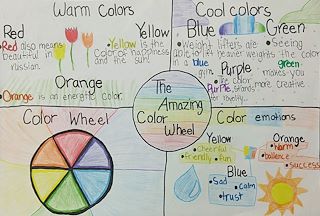 Warm Colors
Red
Yellow
Red also means
beautiful in
russian.
Yellow is the
Color of happiness
and the sun!
Orange
Orange is an energetic color.
Cool colors
Blue
Green
Weight lifters are
able to lift heavier weights
in a blue
gym.
Seeing
the color
green
makes you
more creative
Purple
Purple stands
for royalty
The
Amazing
Color
Wheel
Color Wheel
Color emotions
Yellow
Cheerful
friendly
fun
Orange
warm
success
Blue
Sad
calm
trust